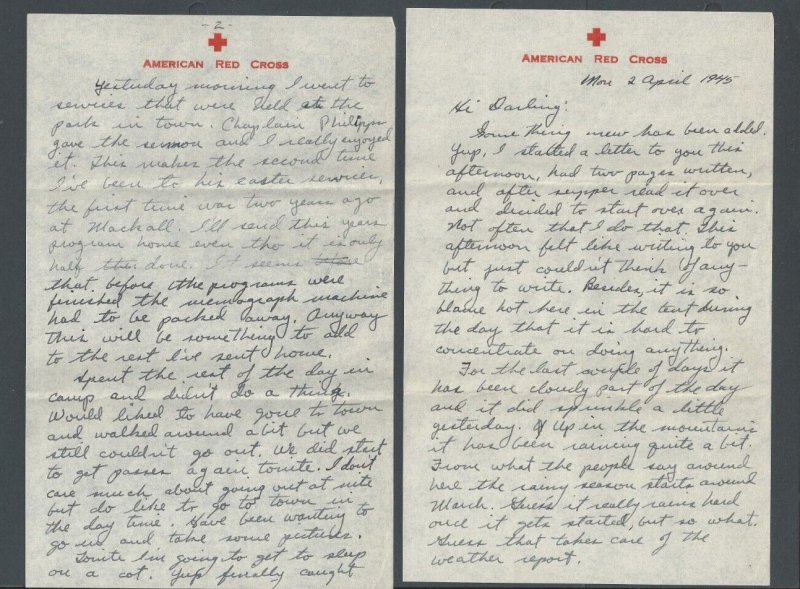 AMERICAN RED CROSS
Mon 2 April 1945
Hi Darling:
Some thing new has been added.
Yup, I started a letter to you this
afternoon, had two pages written,
and after supper read it over
and decided to start over again.
Not often that I do that. This
afternoon felt like writing to you
but just couldn't think of any-
thing to write. Besides, it is so
blame hot here in the tent during
the day that it is hard to
concentrate on doing anything.
For the last couple of days it
has been cloudy part of the day
and it did sprinkle a little
yesterday. Up in the mountains
it has been raining quite a bit.
From what the people say around
here the rainy season starts around
March. Guess it really rains hard
once it gets started, but so what.
Guess that takes care of the
weather report.
-2-
AMERICAN RED CROSS
Yesterday morning I went to
services that were held at the
park in town. Chaplain
gave the sermon and I really enjoyed
it. This makes the second time
I've been to his easter services,
the first time was two years ago
at Mackall. I'll send this years
program home even tho it is only
half done. It seems
that before the programs were
finished the memograph machine
had to be packed away. Anyway
this will be something to add
to the rest I've sent home.
Spent the rest of the day in
camp and didn't do a thing.
Would liked to have gone to town
and walked around a bit but we
still couldn't go out. We did start
to get passes again tonite. I don't
care much about going out at nite
but do like to go to town in
the day time. Have been wanting to
go in and take some pictures.
Tonite I'm going to get to sleep
on a cot. Yup finally caught